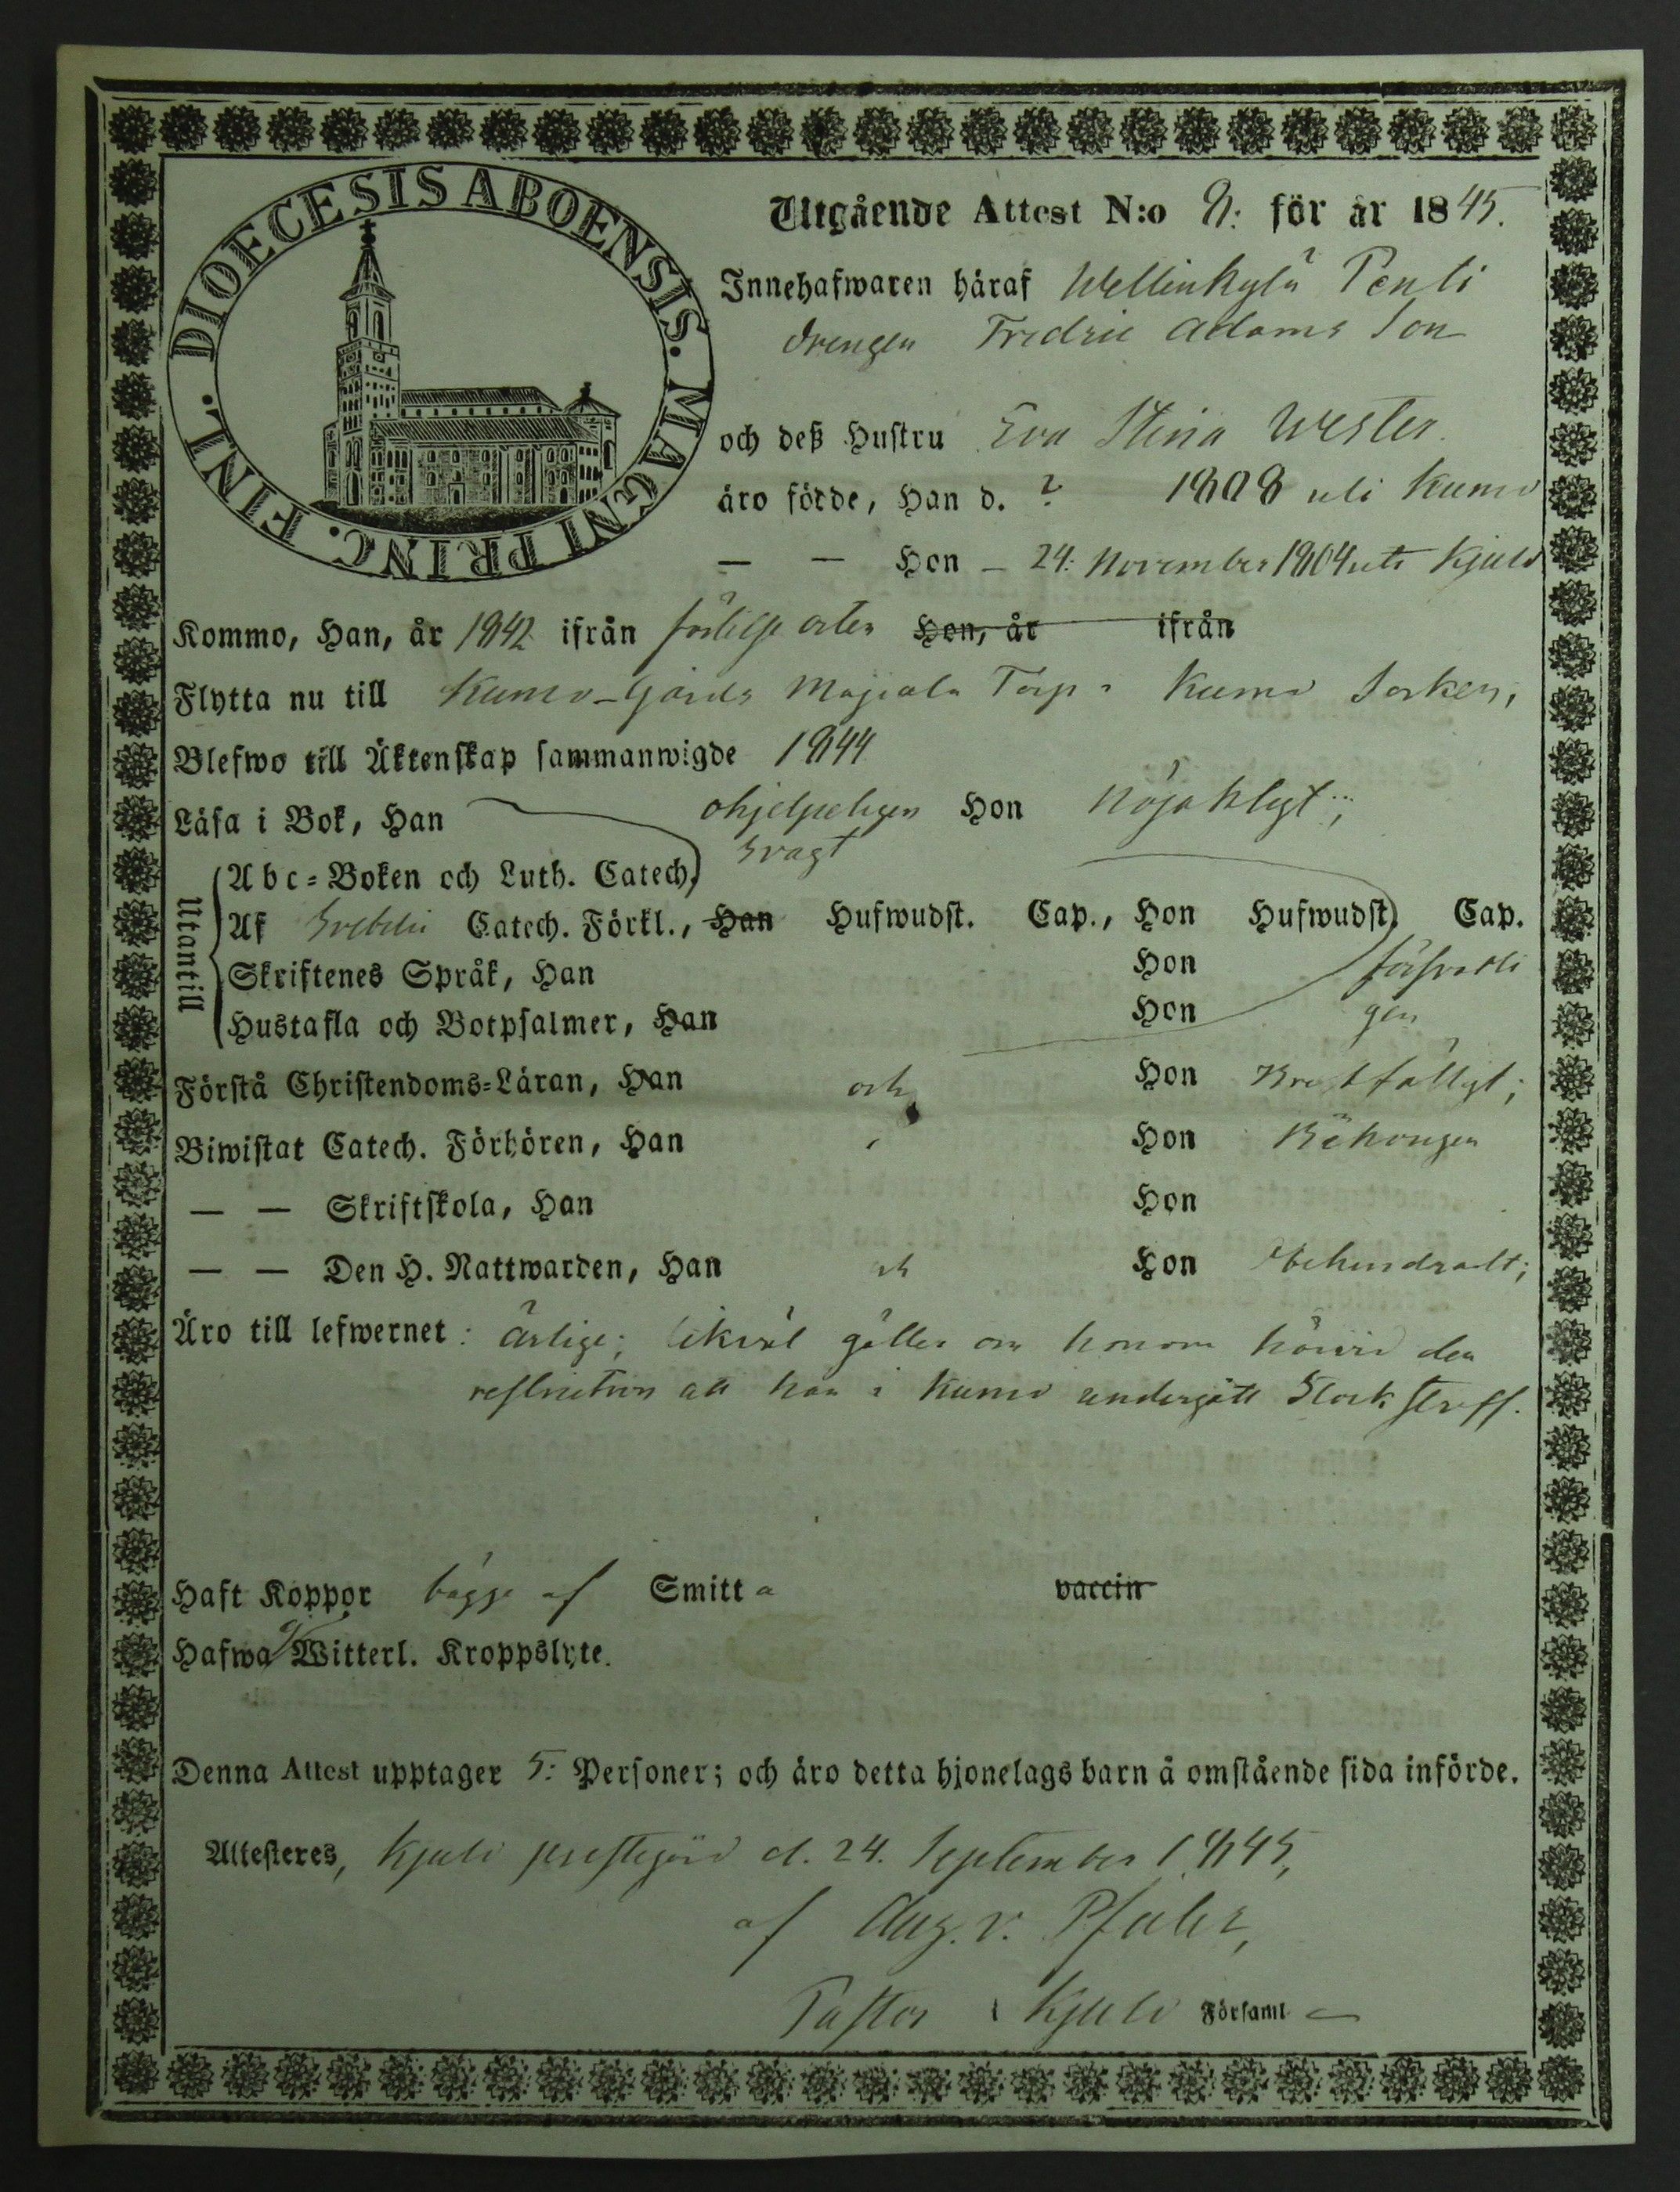 DIOECESIS ABOENSIS. MAGNI PRINC. FINL.
Utgående Attest N:o 8: för år 1845.
Innehafwaren häraf Wellinkylä Penti
drengen Fredric Adams Son
och deß Hustru Eva Stina Wester
äro födde, Han d. ? 1808 uti Kumo
— — Hon – 24: November 1804 uti Kjulo
Kommo, Han, år 1842 ifrån Hon, år ifrån
Flytta nu till Kumo-Gårds Torp i Kumo Socken,
Blefwo till Äktenskap sammanwigde 1844
Läsa i Bok, Han ohjelpeligen Hon nöjaktigt;
svagt
Utantill
Abc-Boken och Luth. Catech.
Af Svebelii Catech. Förkl., Han Hufwudst. Cap., Hon Hufwudst. Cap.
Skriftenes Språk, Han Hon försvarli
Hustafla och Botpsalmer, Han Hon gen
Förstå Christendoms-Läran, Han och Hon Bristfälligt;
Biwistat Catech. Förhören, Han Hon Behörigen
— — Skriftskola, Han Hon
— — Den H. Nattwarden, Han och Hon Obehindradt;
Äro till lefwernet: ärlige; likväl gäller om honom härvid den
restriction att han i Kumo undergått Stock straff.
Haft Koppor bägge af Smitta vaccin
Hafwa ej Witterl. Kroppslyte.
Denna Attest upptager 5: Personer; och äro detta hjonelags barn å omstående sida införde.
Attesteres, Kjulo prestegård d. 24. September 1845,
af Aug. v. Pfaler,
Pastor i Kjulo Församl